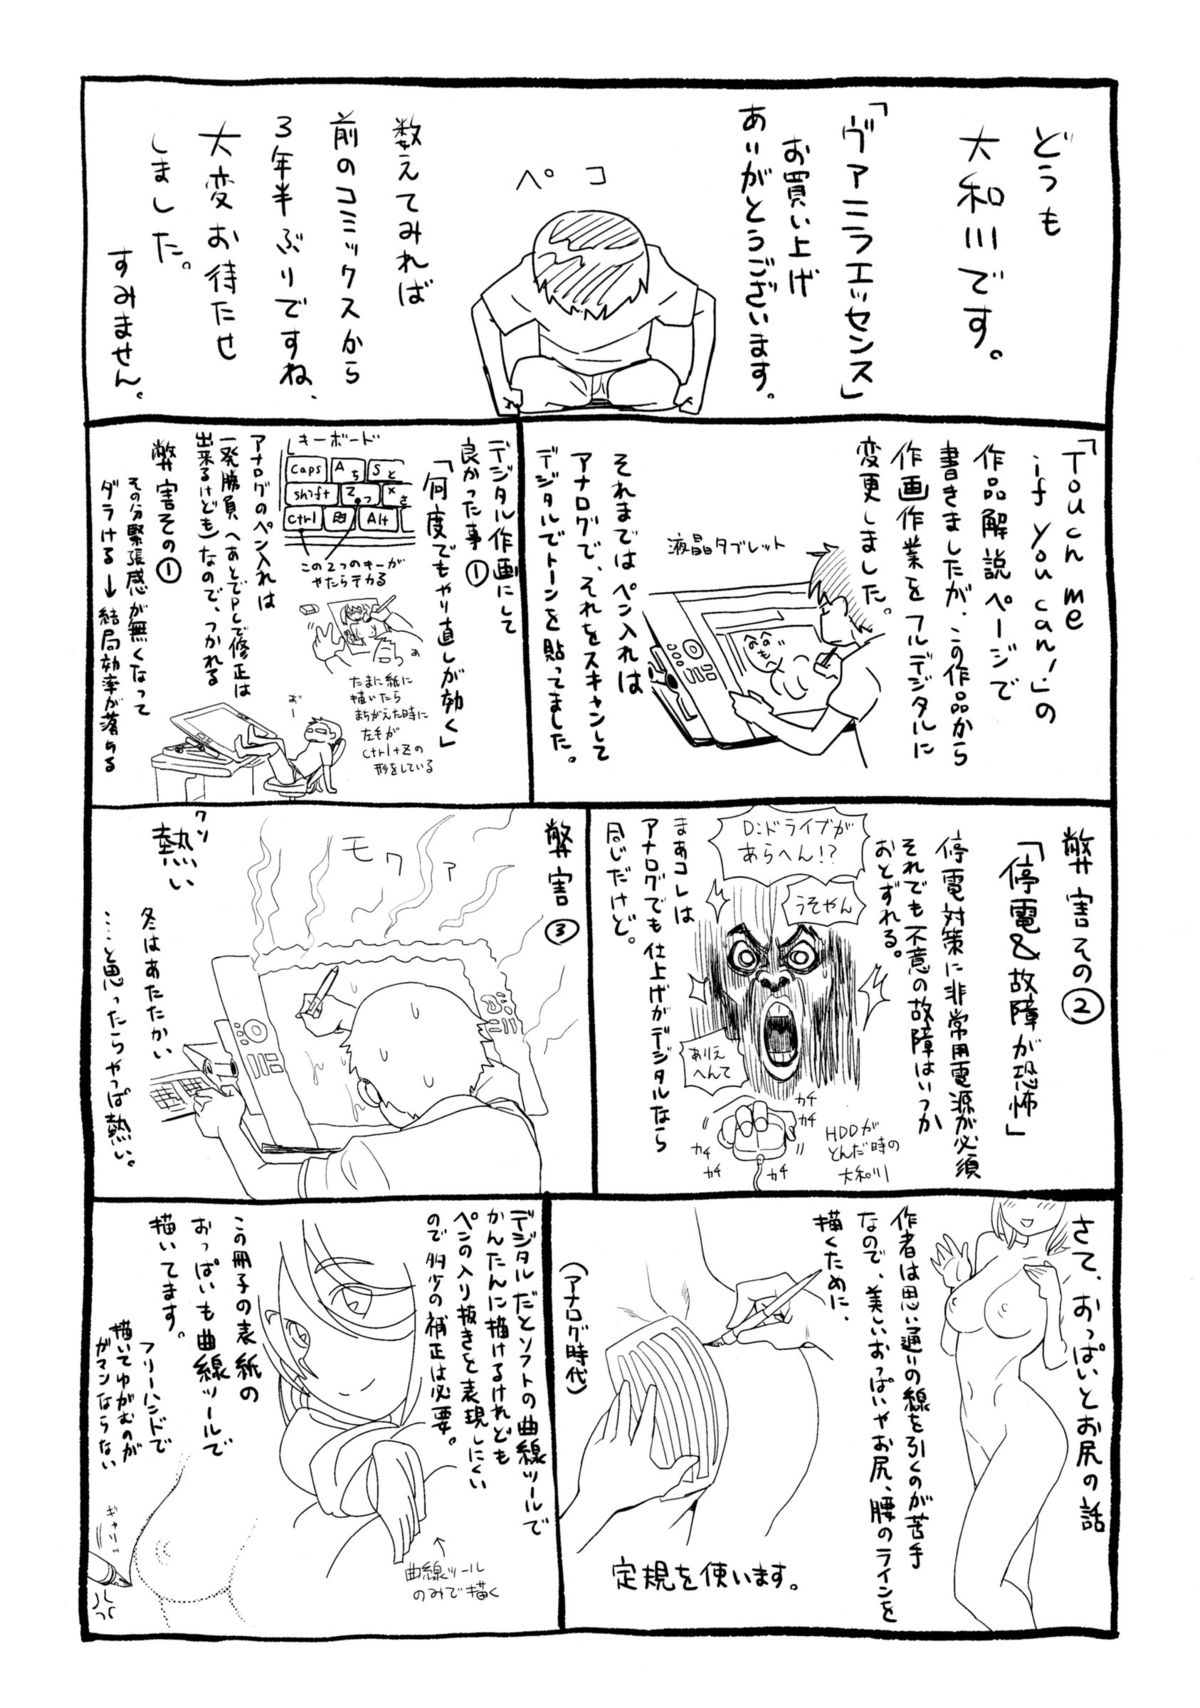 どうも
大和川です。
「ヴァニラエッセンス」
お買い上げ
ありがとうございます。
ペコ
数えてみれば
前のコミックスから
3年半ぶりですね、
大変お待たせ
しました。
すみません。
「Touch me
if you can!」の
作品解説ページで
書きましたが、この作品から
作画作業をフルデジタルに
変更しました。
液晶タブレット
それまではペン入れは
アナログで、それをスキャンして
デジタルでトーンを貼ってました。
デジタル作画にして
良かった事①
「何度でもやり直しが効く」
キーボード
Caps
A ち
S と
shift
Z っ
X さ
Ctrl
Alt
この2つのキーが
やたらテカる
たまに紙に
描いたら
まちがえた時に
左手が
Ctrl+Zの
形をしている
アナログのペン入れは
一発勝負(あとでPCで修正は
出来るけども)なので、つかれる
弊害その①
その分緊張感が無くなって
ダラける→結局効率が落ちる
おー
弊害その②
「停電&故障が恐怖」
停電対策に非常用電源が必須
それでも不意の故障はいつか
おとずれる。
D:ドライブが
あらへん!?
うそやん
ありえ
へんて
カチ
カチ
カチ
カチ
カチ
HDDが
とんだ時の
大和川
まあコレは
アナログでも仕上げがデジタルなら
同じだけど。
弊害③
モワァ
クソ
熱い
冬はあたたかい
……と思ったらやっぱ熱い。
さて、おっぱいとお尻の話
作者は思い通りの線を引くのが苦手
なので、美しいおっぱいやお尻、腰のラインを
描くために
(アナログ時代)
定規を使います。
デジタルだとソフトの曲線ツールで
かんたんに描けるけれども
ペンの入り抜きを表現しにくい
ので多少の補正は必要。
↑
曲線ツール
のみで描く
この冊子の表紙の
おっぱいも曲線ツールで
描いてます。
フリーハンドで
描いてゆがむのが
ガマンならない
ギャリッ